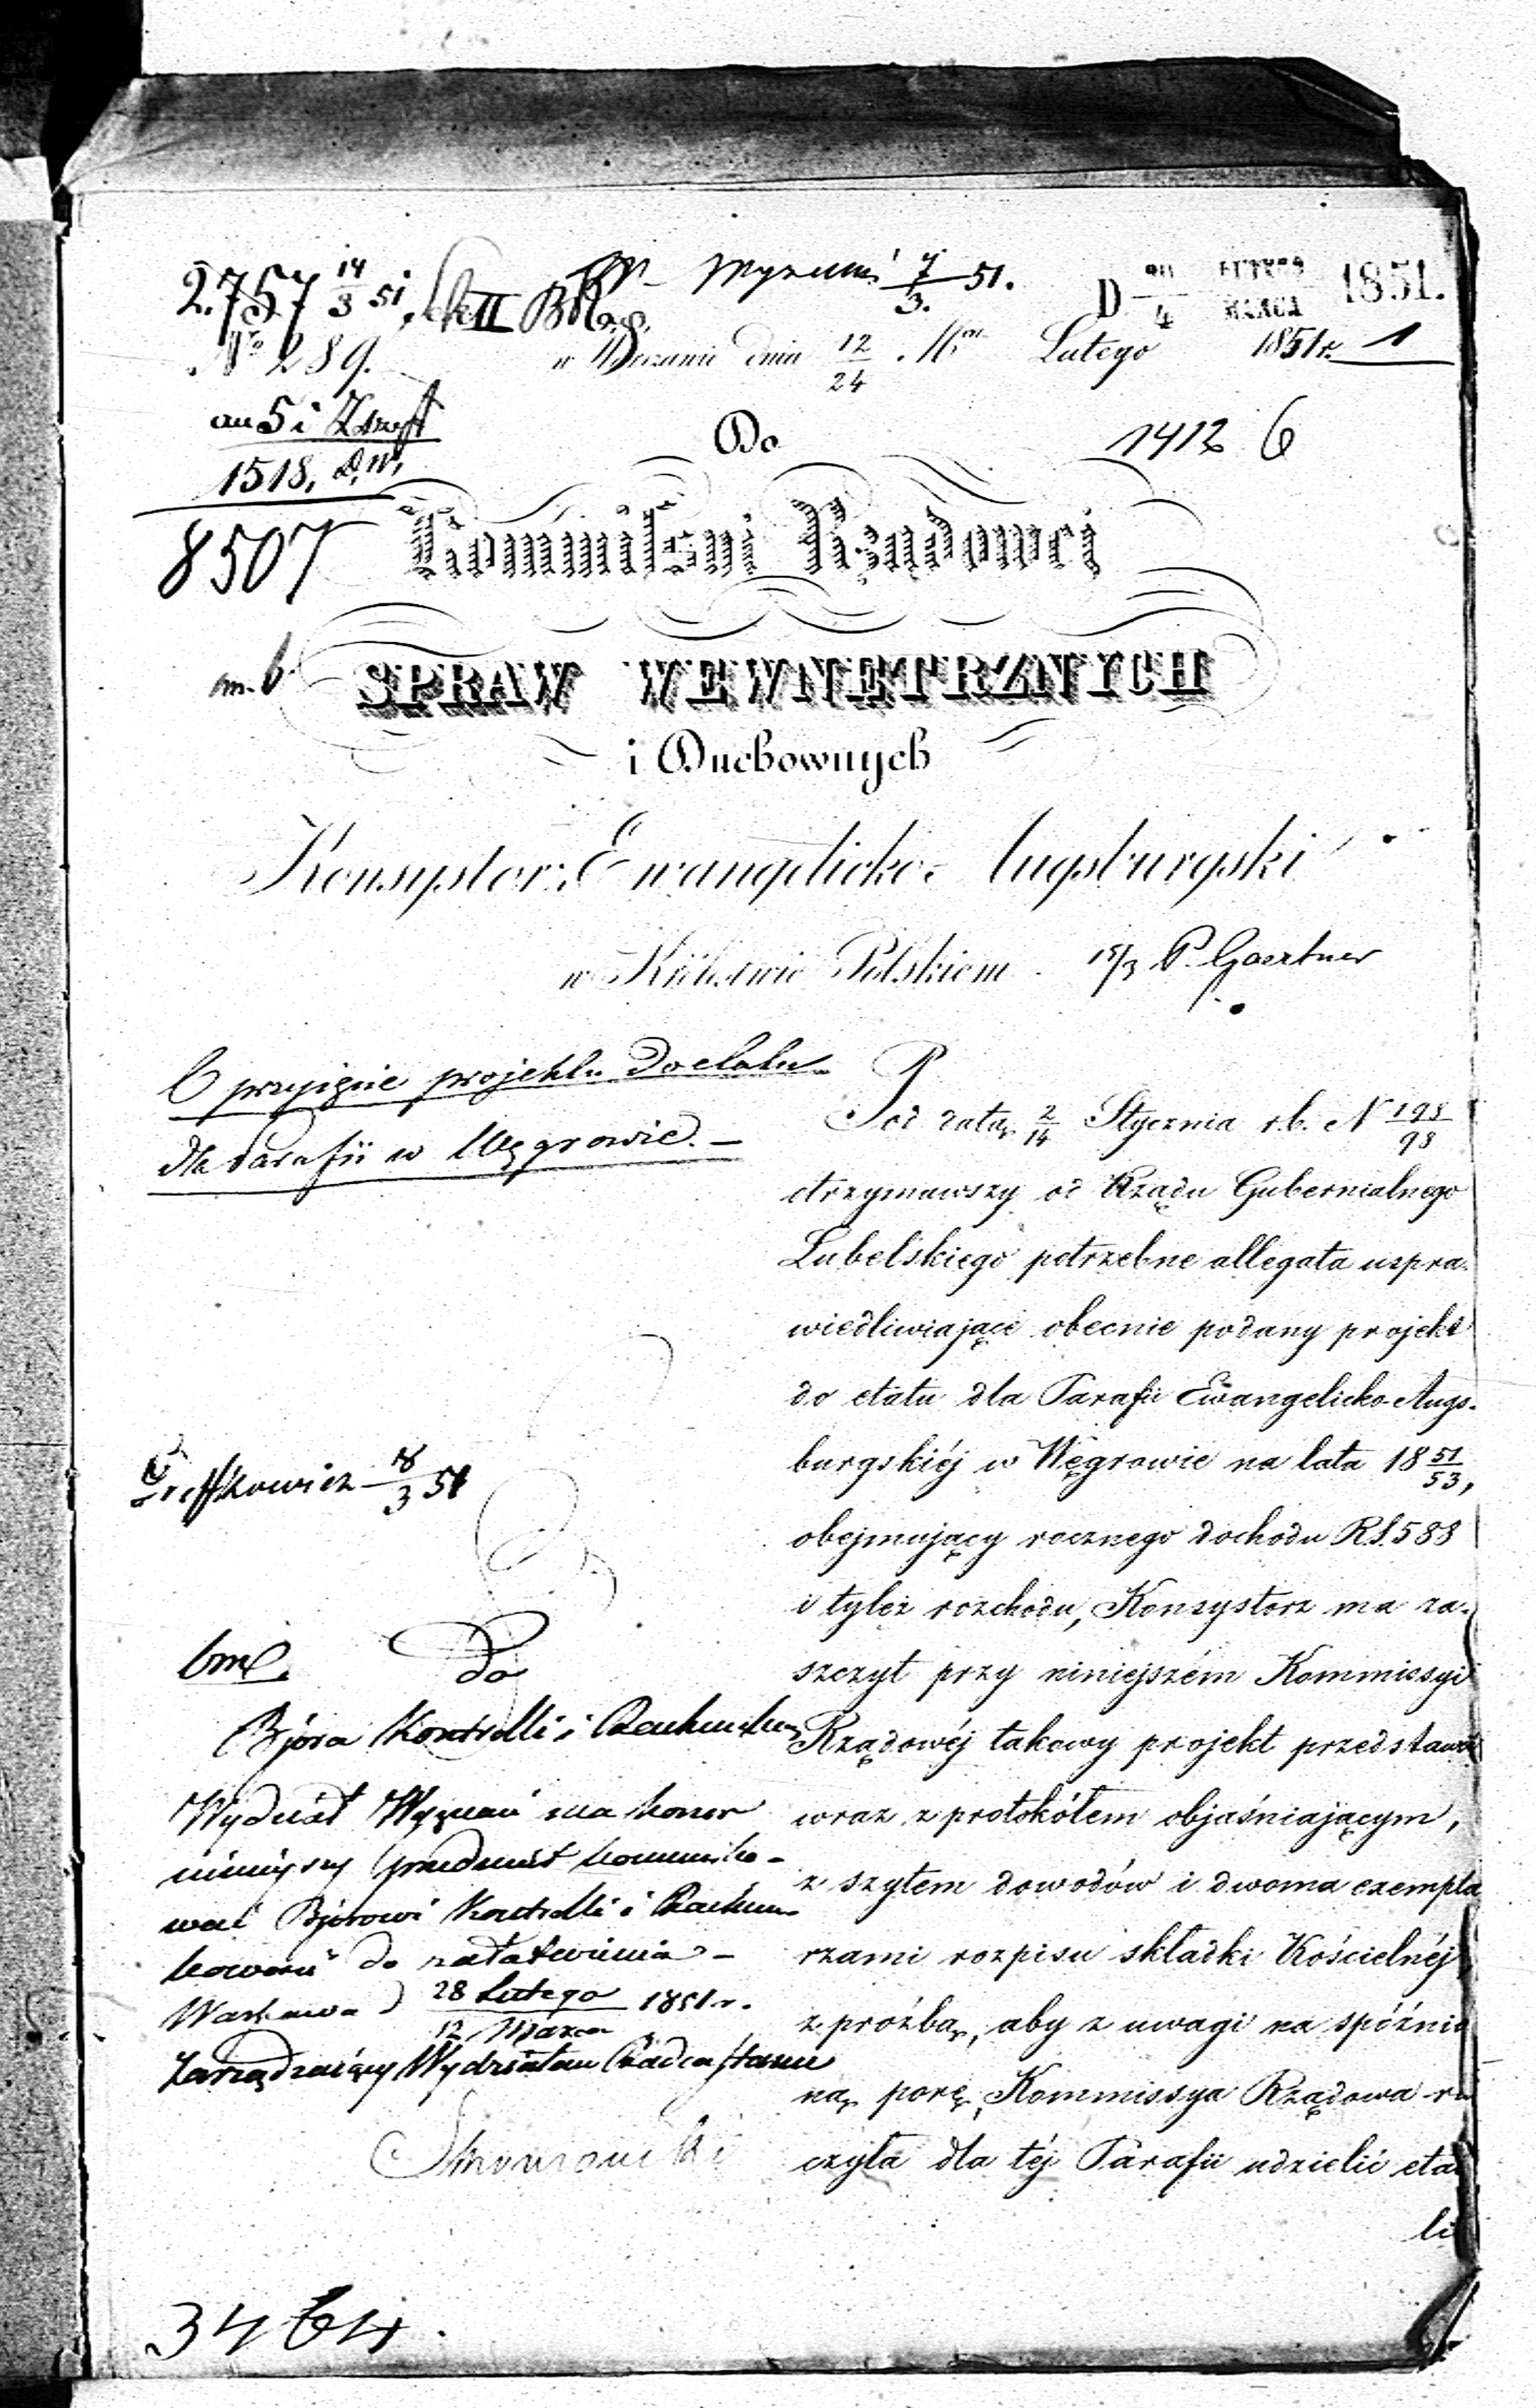 2757 14/3 51. Sek II
Wyznań 7/3. 51.
D 20/4 LUTEGO/MARCA 1851.
No 289.
w Warszawie dnia 12/24 Lutego 1851 r. 1
au 5 i Zszyt
1518, D.W.
Do
1412 6
8507
Kommissyi Rządowéj
m. b.
SPRAW WEWNĘTRZNYCH
i Duchownych
Konsystorz Ewangelicko-Augsburgski
w Królestwie Polskiem
15/3 P. Gaertner
O przyjęcie projektu do etatu
dla Parafii w Węgrowie. —
Pod datą 2/14 Stycznia r. b. N 198/98
otrzymawszy od Rządu Gubernialnego
Lubelskiego potrzebne allegata uspra-
wiedliwiające obecnie podany projekt
do etatu dla Parafii Ewangelicko-Augs-
burgskiéj w Węgrowie na lata 18 51/53,
obejmujący rocznego dochodu R.S. 588
i tyleż rozchodu, Konsystorz ma za-
szczyt przy niniejszém Kommissyi
Rządowéj takowy projekt przedstawić
wraz z protokółem objaśniającym,
z szytem dowodów i dwoma exempla
rzami rozpisu składki Kościelnéj,
z prożbą, aby z uwagi na spóźnio
ną porę, Kommissya Rządowa ra
czyła dla téj Parafii udzielić etat
li
18/3 51
Do
Bjóra Kontrolli i Rachunkow
Wydział Wyznań ma honor
niniejszy przedmiot kommuniko-
wać Bjórowi Kontrolli i Rachun
kowości do załatwienia —
Warszawa d 28 Lutego/12 Marca 1851 r.
Zarządzający Wydziałem Radca Stanu
3464.